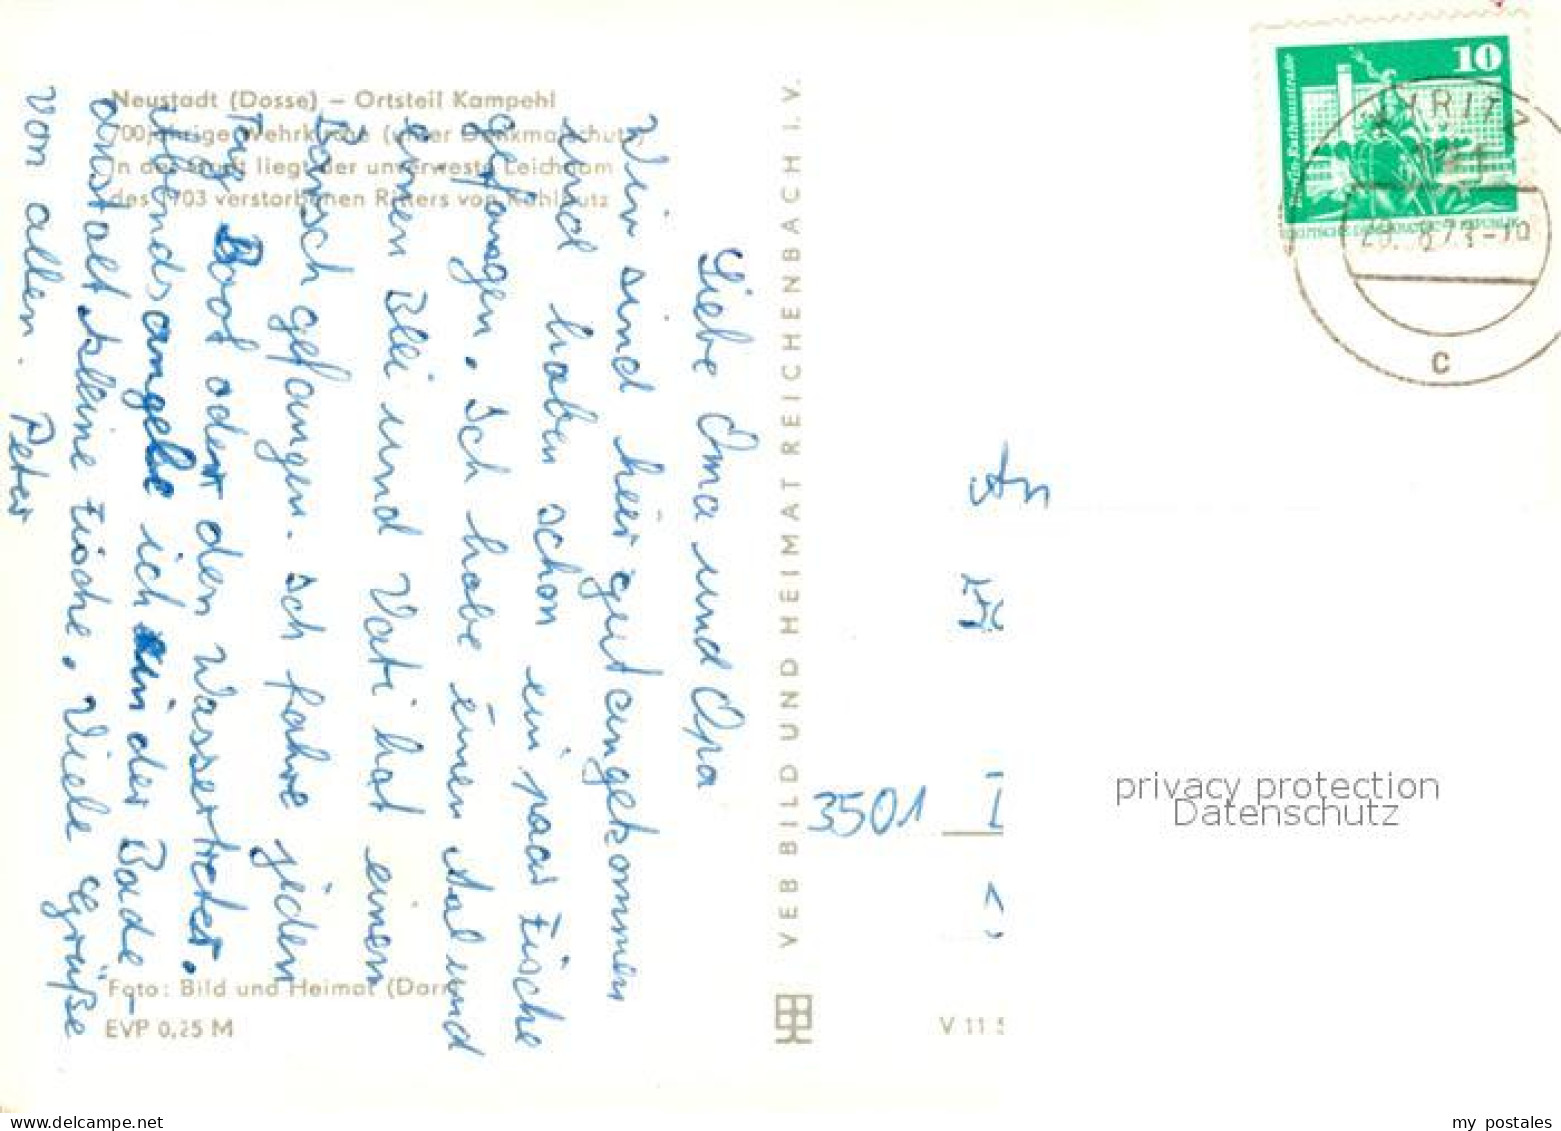 Neustadt (Dosse) – Ortsteil Kampehl
700jährige Wehrkirche (unter Denkmalschutz)
In der Stadt liegt der unverweste Leichnam
des 1703 verstorbenen Ritters von Kahlbutz
Liebe Oma und Opa
Wir sind hier gut angekommen
und haben schon ein paar Fische
gefangen. Ich habe einen Aal und
einen Blei und Vati hat einen
Barsch gefangen. Ich fahre jeden
Tag Boot oder den Wassertreter.
abends angele ich in der Bade-
anstalt kleine Fische. Viele Grüße
von allen. Peter
Foto: Bild und Heimat (Darr
EVP 0,25 M
VEB BILD UND HEIMAT REICHENBACH I. V.
V 11 5
10
KYRITZ
1911
28. 8. 73-10
c
DEUTSCHE DEMOKRATISCHE REPUBLIK
An
3501
privacy protection
Datenschutz
my postales